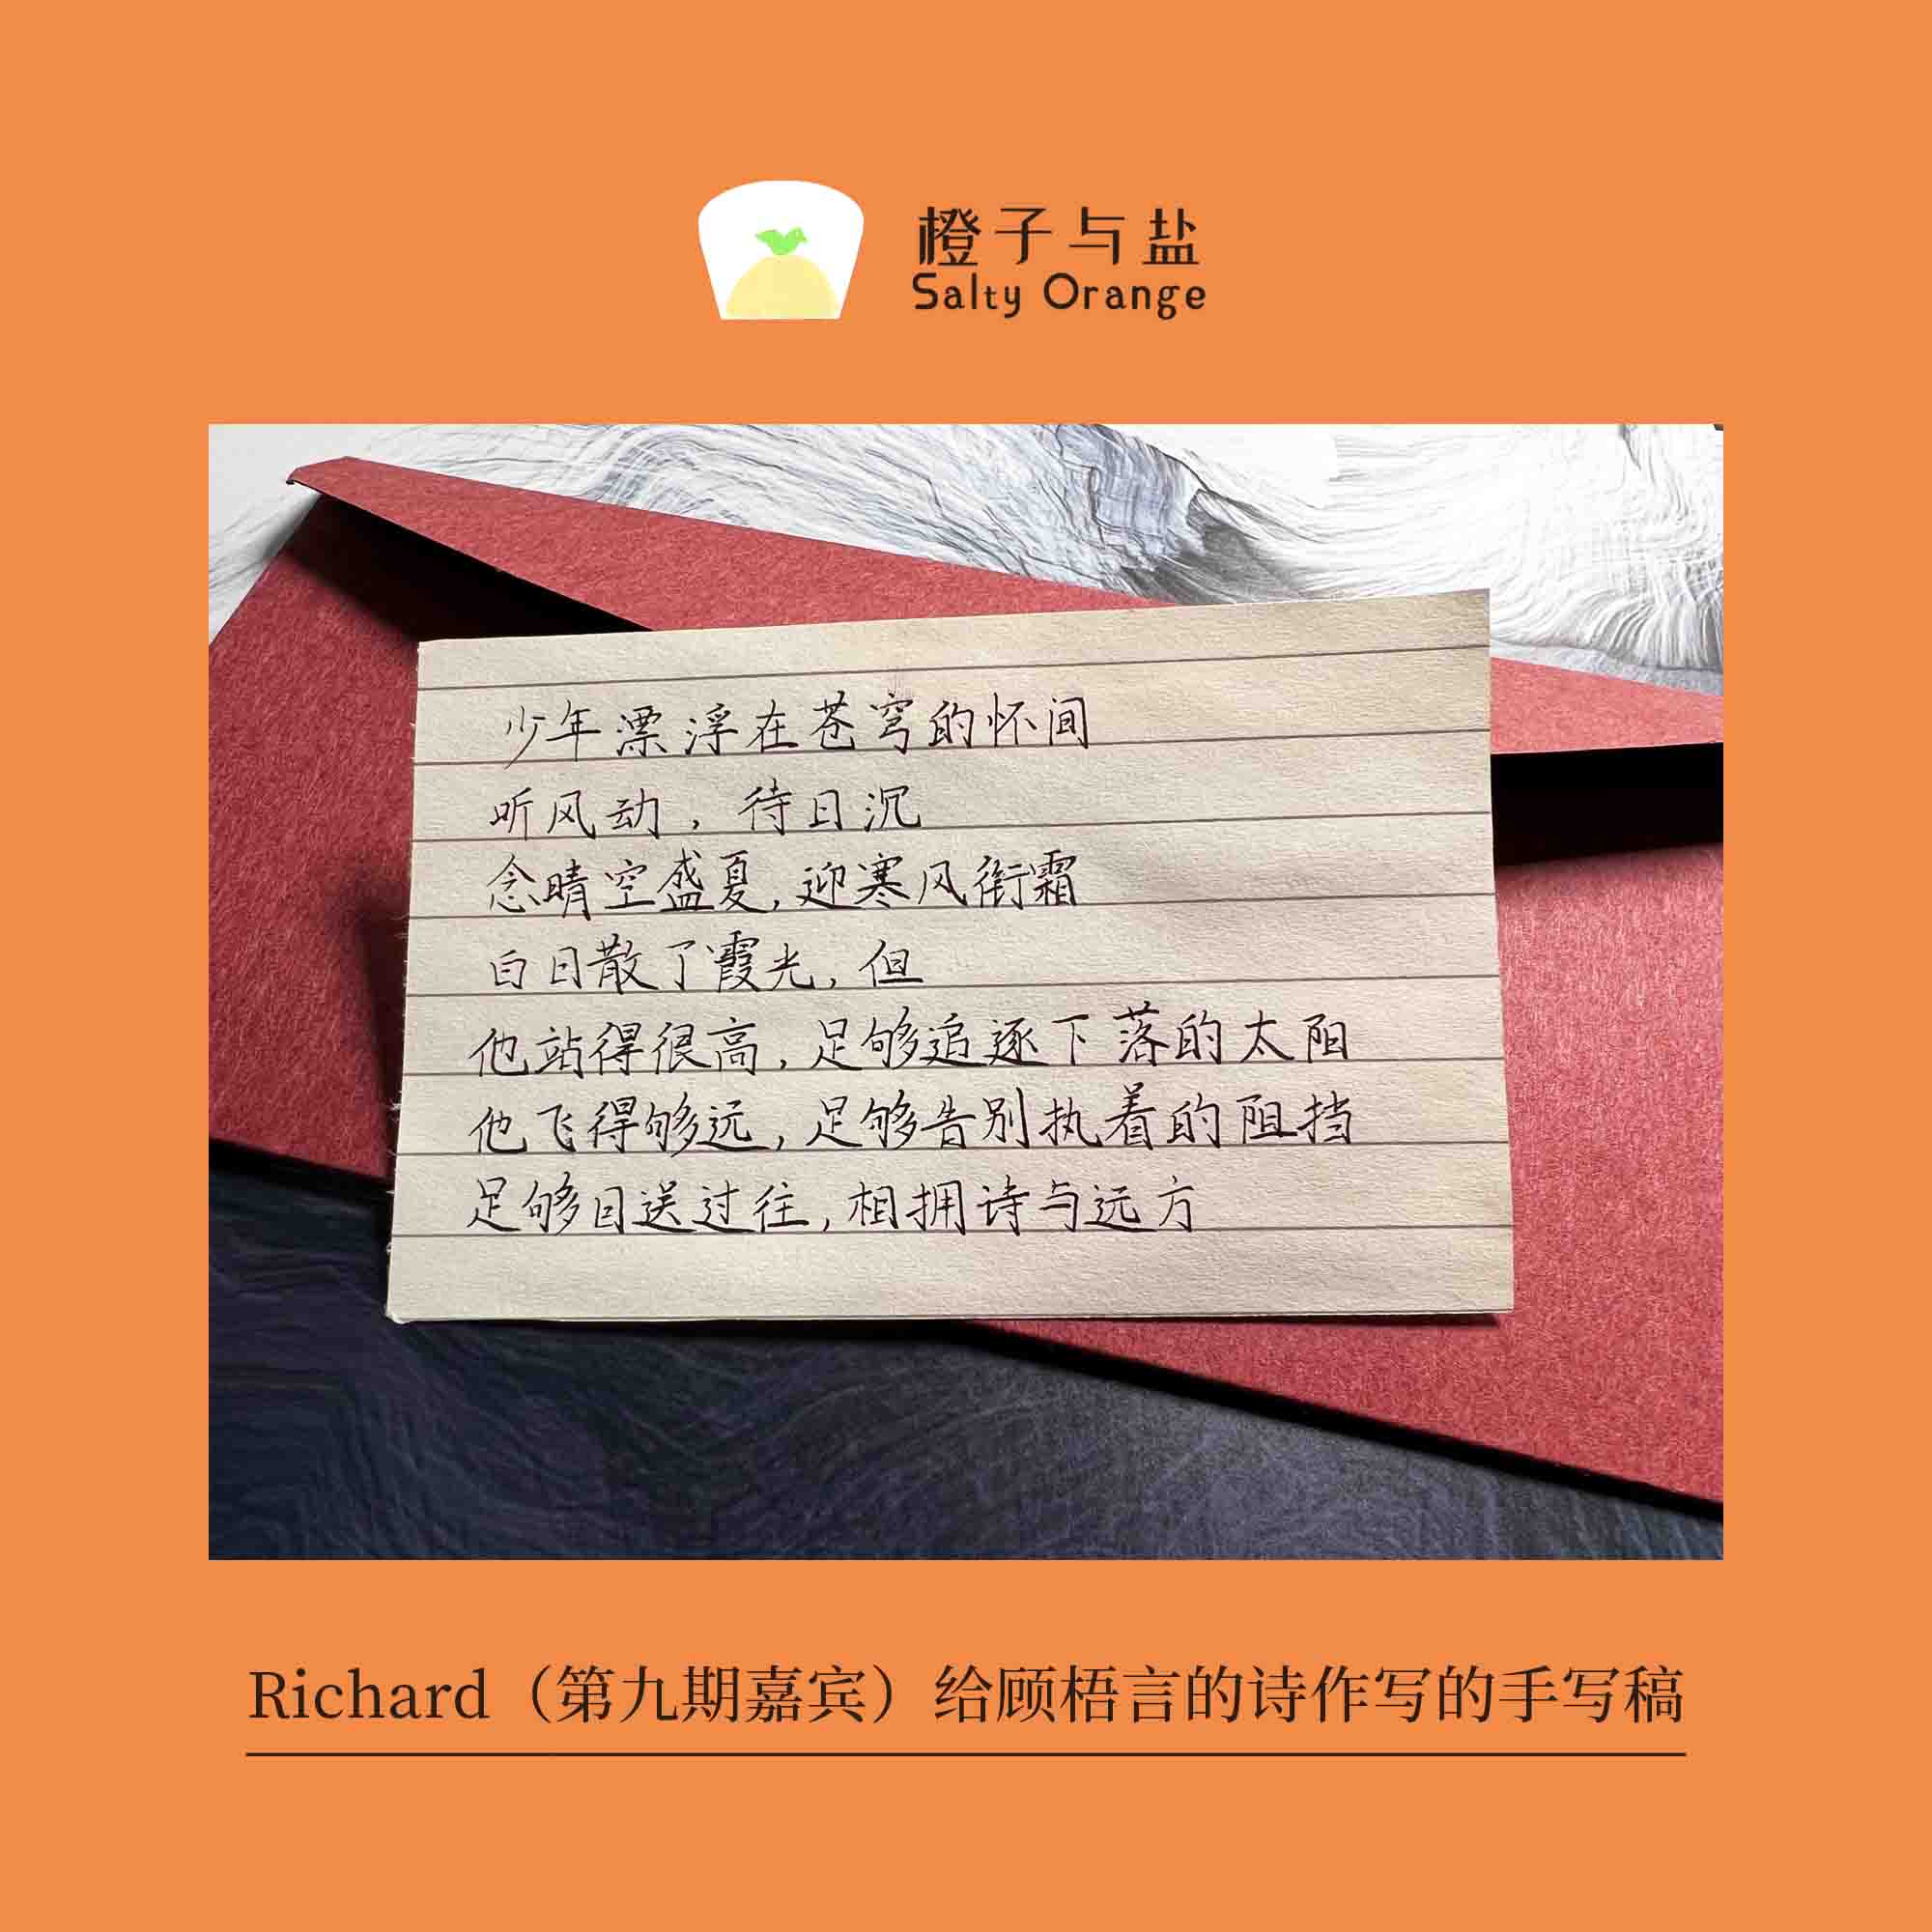 橙子与盐
Salty Orange
少年漂浮在苍穹的怀间
听风动，待日沉
念晴空盛夏，迎寒风衔霜
白日散了霞光，但
他站得很高，足够追逐下落的太阳
他飞得够远，足够告别执着的阻挡
足够目送过往，相拥诗与远方
Richard（第九期嘉宾）给顾梧言的诗作写的手写稿